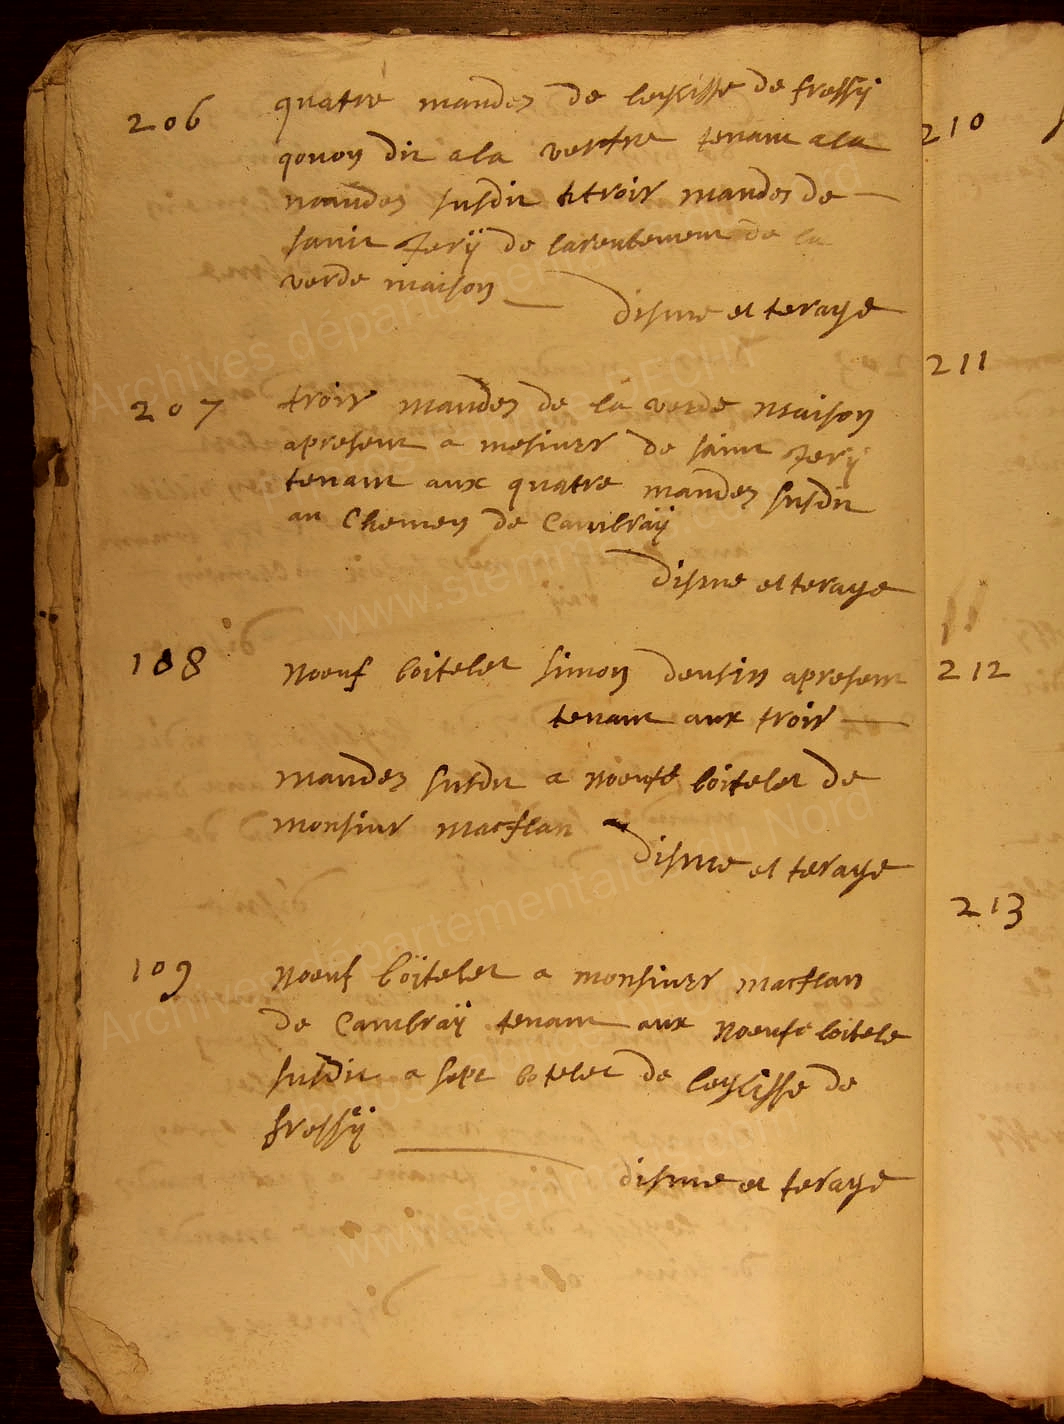 206 quatre mandez de leglisse de fressÿ
quon dit a la vertre tenant a la
mandez susdit et troir mandes de
saint Jerÿ de lareubement de la
verde maison
disme et terage
207 troir mandez de la verde maison
apresent a mesiurs de saint Jerÿ
tenant aux quatre mandez susdit
au Chemen de Cambraÿ
disme et terage
108 noeuf boitelet simon deusin apresent
tenant aux troir
mandez susdit a noeufe boitelet de
monsiur macflan
disme et terage
109 noeuf boitelet a monsiurs macflan
de Cambraÿ tenant aux noeufe boitele
susdit a sept botelet de leglisse de
fressÿ
disme et terage
210
211
212
213
Archives départementales du Nord